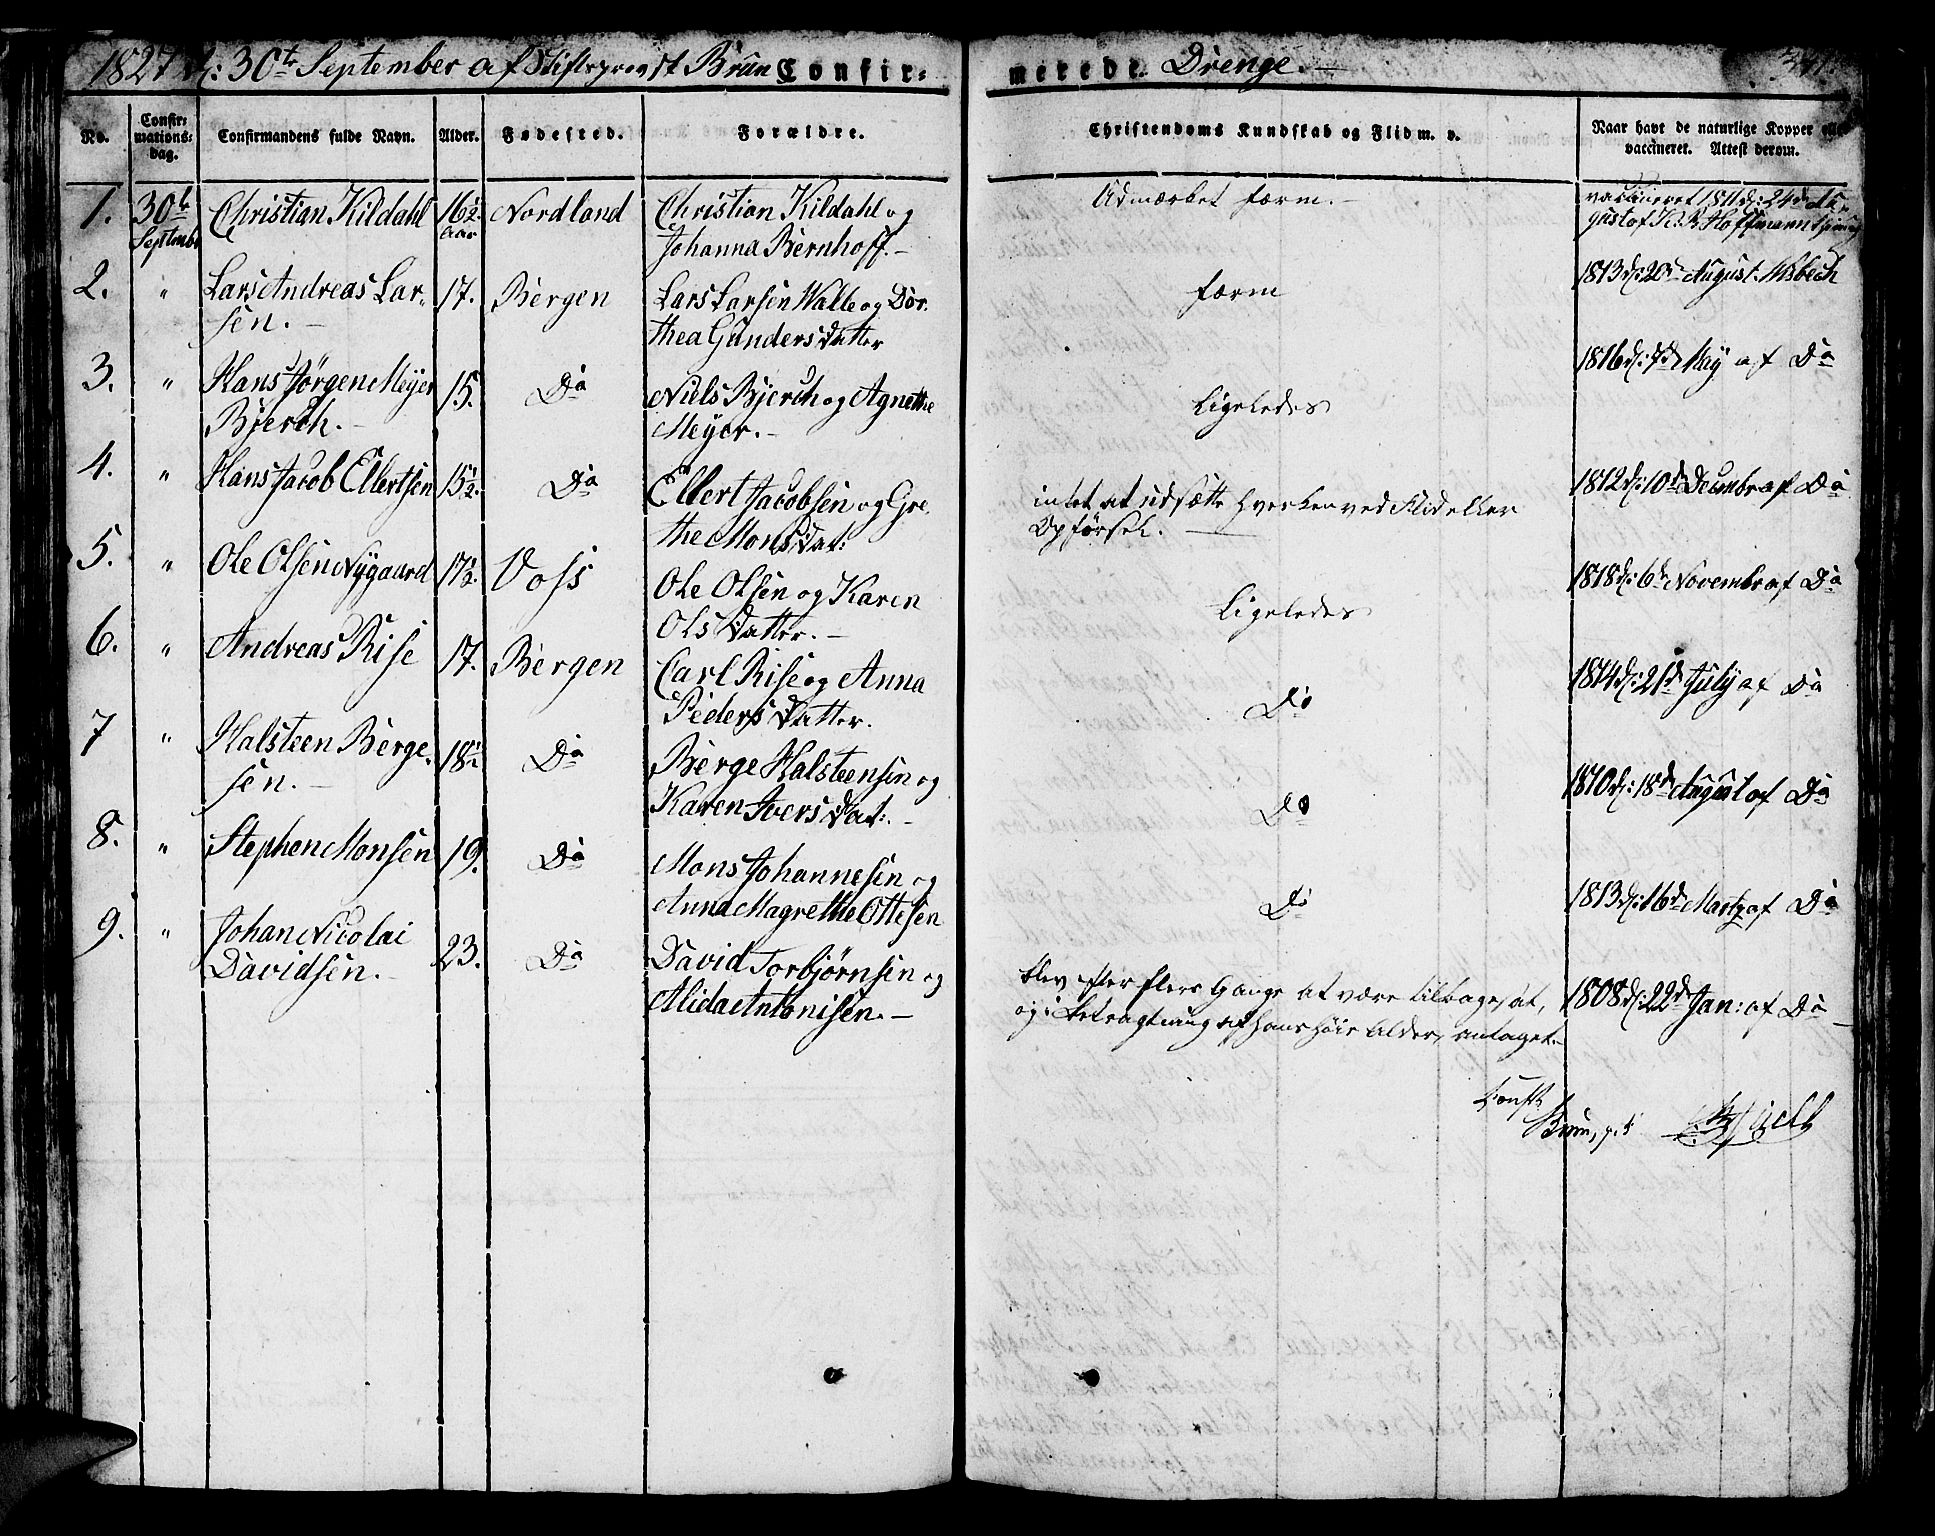 1827 d: 30te September af Stiftsprovst Brun Confir-
merede Drenge. —
No.
Confir-
mations-
dag.
Confirmandens fulde Navn.
Alder.
Fødested.
Forældre.
Christendoms Kundskab og Flid m. v.
Naar havt de naturlige Kopper eller
vaccineret. Attest derom.
1. 30te Christian Kildahl 16½ Nordland Christian Kildahl og Udmærket færm. — vaccineret 1811 d: 24de Au-
Septembr Aar Johanna Bernhoff. — gust af Hoffmann
2. " Lars Andreas Lar- 17. Bergen Lars Larsen Walle og Dor- færm 1813 d: 20de August
sen. — thea GundersDatter
3. " Hans Jørgen Meyer 15. Do Niels Bjerch og Agnethe Ligeledes 1816 d: 7de May af Do
Bjerch. — Meyer. —
4. " Hans Jacob Ellertsen 15½. Do Ellert Jacobsen og Gre- intet at udsætte hverken ved Flid eller 1812 d: 10de Decembr af Do
the MonsDat: Opførsel. —
5. " Ole Olsen Nygaard 17½. Voss Ole Olsen og Karen Ligeledes 1818 d: 6te Novembr af Do
OlsDatter. —
6. " Andreas Rise 17. Bergen Carl Rise og Anna Do 1814 d: 21de July af Do
PedersDatter.
7 " Halsteen Berge- 18½ Do Berge Halsteensen og Do 1810 d: 18de August af Do
sen. — Karen IversDat: —
8. " Stephen Monsen 19. Do Mons Johannesen og Do 1813 d: 16de Martz af Do
Anna Magrethe Ottesen
9. " Johan Nicolai 23. Do David Torbjørnsen og blev efter flere Gange at være tilbagesat, 1808 d: 22de Jan: af Do
Davidsen. — Alida Antonisen. — og i Betragtning af hans høie Alder, antaget. —
Brun,